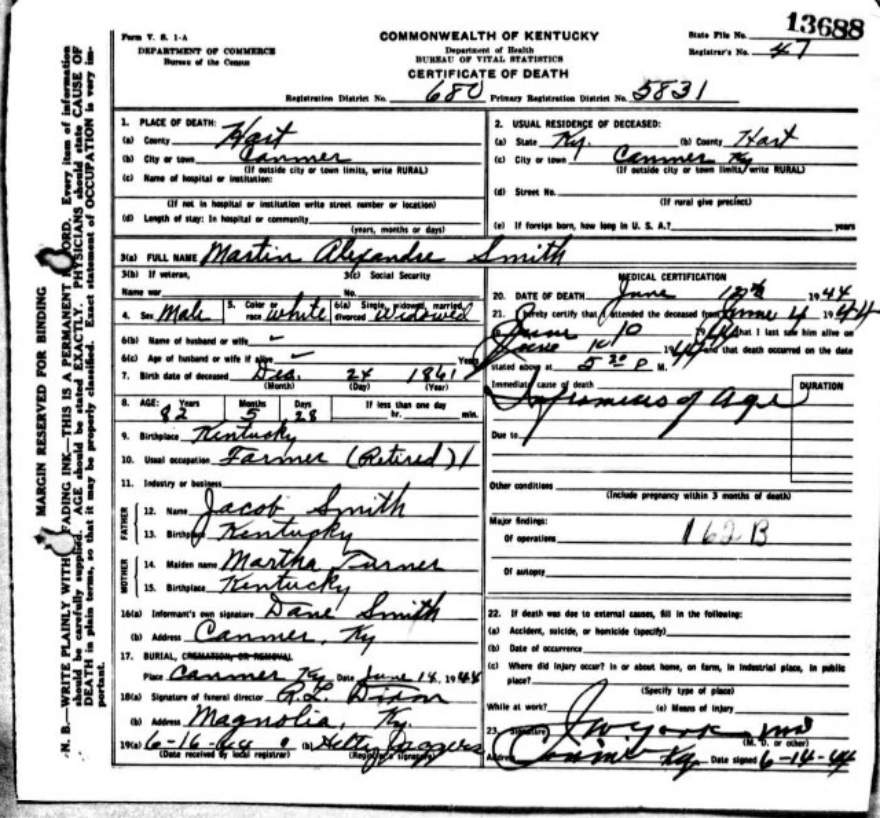 13688
Form V. S. 1-A
COMMONWEALTH OF KENTUCKY
State File No.
DEPARTMENT OF COMMERCE
Bureau of the Census
Department of Health
BUREAU OF VITAL STATISTICS
Registrar's No. 47
CERTIFICATE OF DEATH
Registration District No. 680 Primary Registration District No. 5831
MARGIN RESERVED FOR BINDING
N. B.—WRITE PLAINLY WITH FADING INK—THIS IS A PERMANENT RECORD. Every item of information
should be carefully supplied. AGE should be stated EXACTLY. PHYSICIANS should state CAUSE OF
DEATH in plain terms, so that it may be properly classified. Exact statement of OCCUPATION is very im-
portant.
1. PLACE OF DEATH:
(a) County Hart
(b) City or town Canmer
(If outside city or town limits, write RURAL)
(c) Name of hospital or institution:
(If not in hospital or institution write street number or location)
(d) Length of stay: In hospital or community
(years, months or days)
2. USUAL RESIDENCE OF DECEASED:
(a) State Ky. (b) County Hart
(c) City or town Canmer Ky
(If outside city or town limits, write RURAL)
(d) Street No.
(If rural give precinct)
(e) If foreign born, how long in U. S. A.? years
3(a) FULL NAME Martin Alexandre Smith
3(b) If veteran, 3(c) Social Security
Name war No.
4. Sex Male 5. Color or race White 6(a) Single, widowed, married, divorced Widowed
6(b) Name of husband or wife
6(c) Age of husband or wife if alive Years
7. Birth date of deceased Dec. 24 1861
(Month) (Day) (Year)
8. AGE: Years Months Days If less than one day
82 5 28 hr. min.
9. Birthplace Kentucky
10. Usual occupation Farmer (Retired)
11. Industry or business
FATHER
12. Name Jacob Smith
13. Birthplace Kentucky
MOTHER
14. Maiden name Martha Turner
15. Birthplace Kentucky
16(a) Informant's own signature Dave Smith
(b) Address Canmer, Ky
17. BURIAL, CREMATION, OR REMOVAL
Place Canmer Ky Date June 14, 1944
18(a) Signature of funeral director R.L. Dixon
(b) Address Magnolia, Ky.
19(a) 6-16-44 (b) Jaggers
(Date received by local registrar) (Registrar's signature)
MEDICAL CERTIFICATION
20. DATE OF DEATH June 12th 1944
21. I hereby certify that I attended the deceased from June 4 1944
June 10 1944 that I last saw him alive on
June 10 1944 and that death occurred on the date
stated above at 5 20 P M.
Immediate cause of death DURATION
of Age
Due to
Other conditions
(Include pregnancy within 3 months of death)
Major findings:
Of operations 162B
Of autopsy
22. If death was due to external causes, fill in the following:
(a) Accident, suicide, or homicide (specify)
(b) Date of occurrence
(c) Where did injury occur? In or about home, on farm, in industrial place, in public
place?
(Specify type of place)
While at work? (e) Means of injury
23. Signature MD
(M. D. or other)
Address Ky Date signed 6-14-44